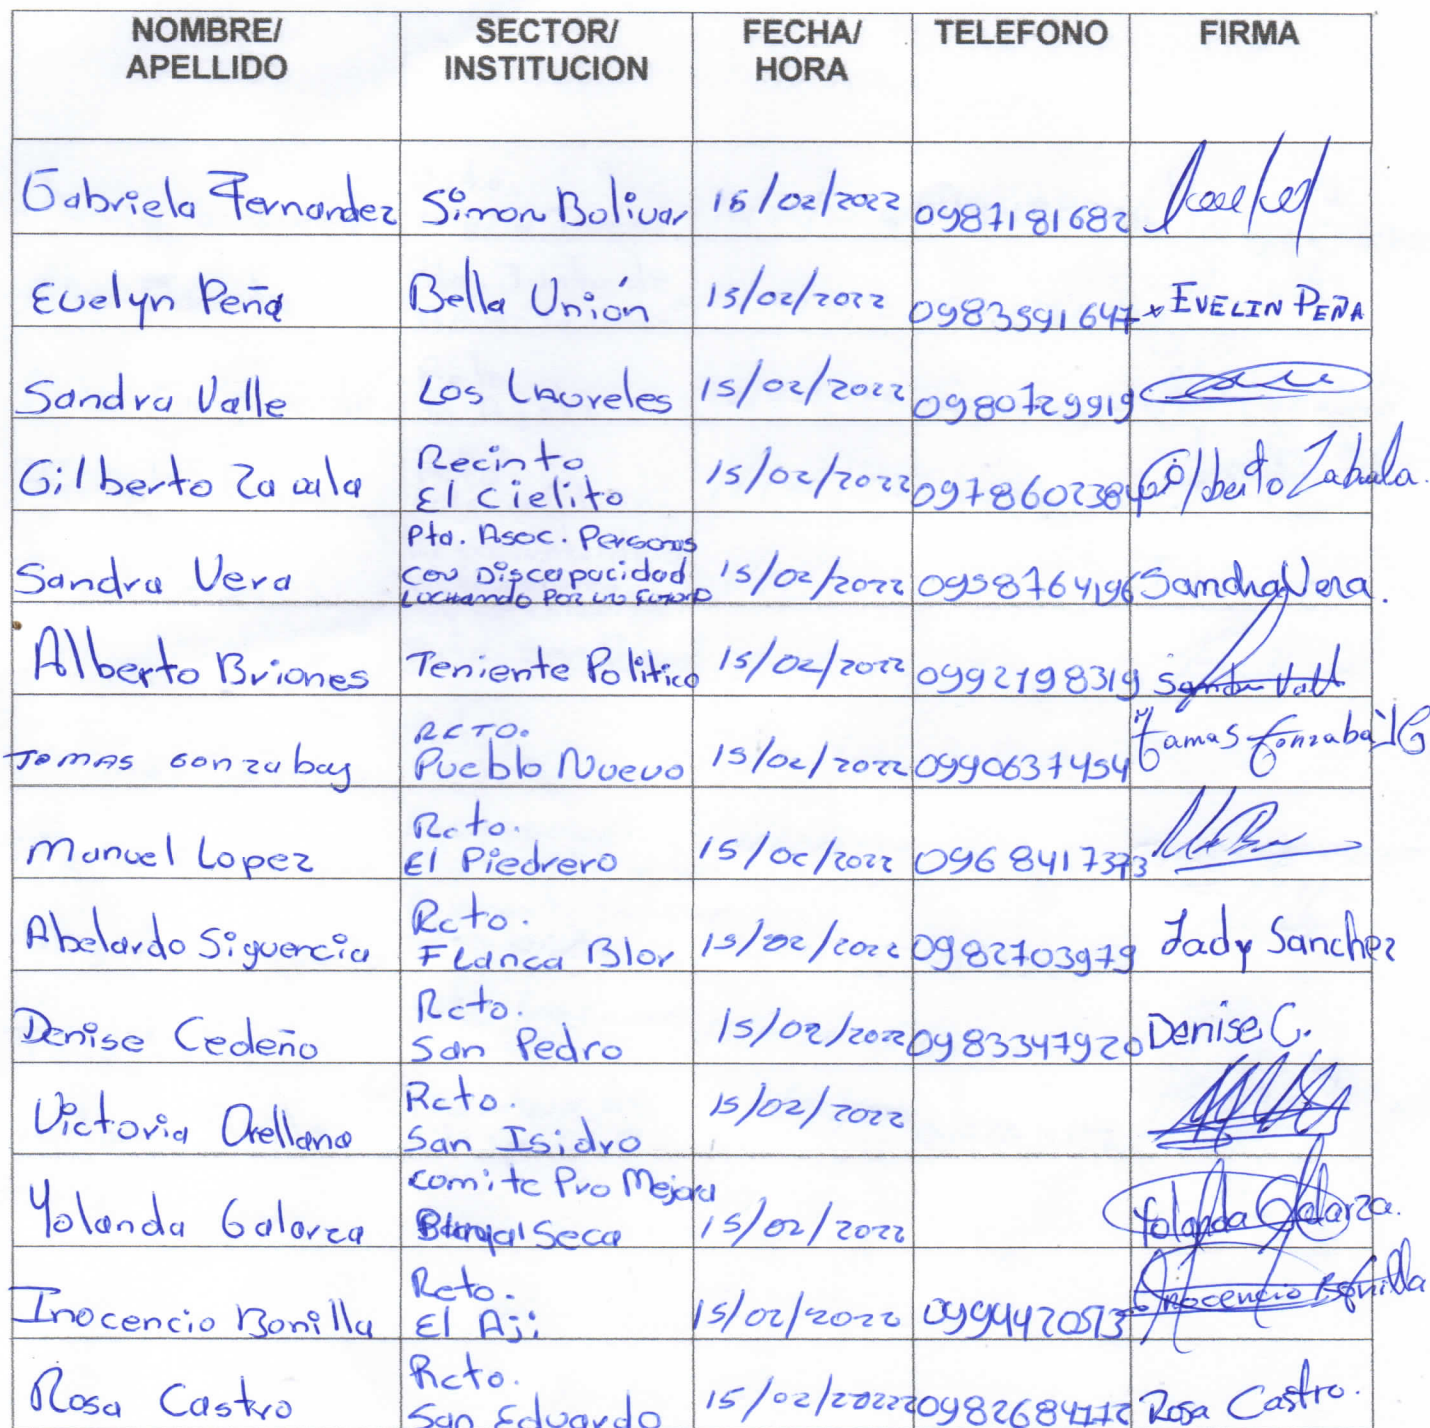 NOMBRE/ APELLIDO SECTOR/ INSTITUCION FECHA/ HORA TELEFONO FIRMA
Gabriela Fernandez Simon Bolivar 15/02/2022 0987181682
Evelyn Peña Bella Unión 15/02/2022 0983591647 x EVELIN PEÑA
Sandra Valle Los Laureles 15/02/2022 0980729919
Gilberto Recinto El Cielito 15/02/2022 Gilberto Zabala.
Sandra Vera Pta. Asoc. Personas con Discapacidad Luchando Por un Futuro 15/02/2022 0958764196 Sandra Vera.
Alberto Briones Teniente Politico 15/02/2022 0992798319
Tomas Gonzabay RCTO. Pueblo Nuevo 15/02/2022 0990637454
Manuel Lopez Rcto. El Piedrero 15/02/2022 0968417373
Abelardo Siguencia Rcto. Flanca Blor 15/02/2022 0982703979 Lady Sanchez
Denise Cedeño Rcto. San Pedro 15/02/2022 0983347920 Denise C.
Victoria Orellana Rcto. San Isidro 15/02/2022
Yolanda Galarza Comite Pro Mejora Seca 15/02/2022 Yolanda Galarza.
Inocencio Bonilla Rcto. El Aji 15/02/2022 0994420573 Inocencio Bonilla
Rosa Castro Rcto. San Eduardo 15/02/2022 Rosa Castro.